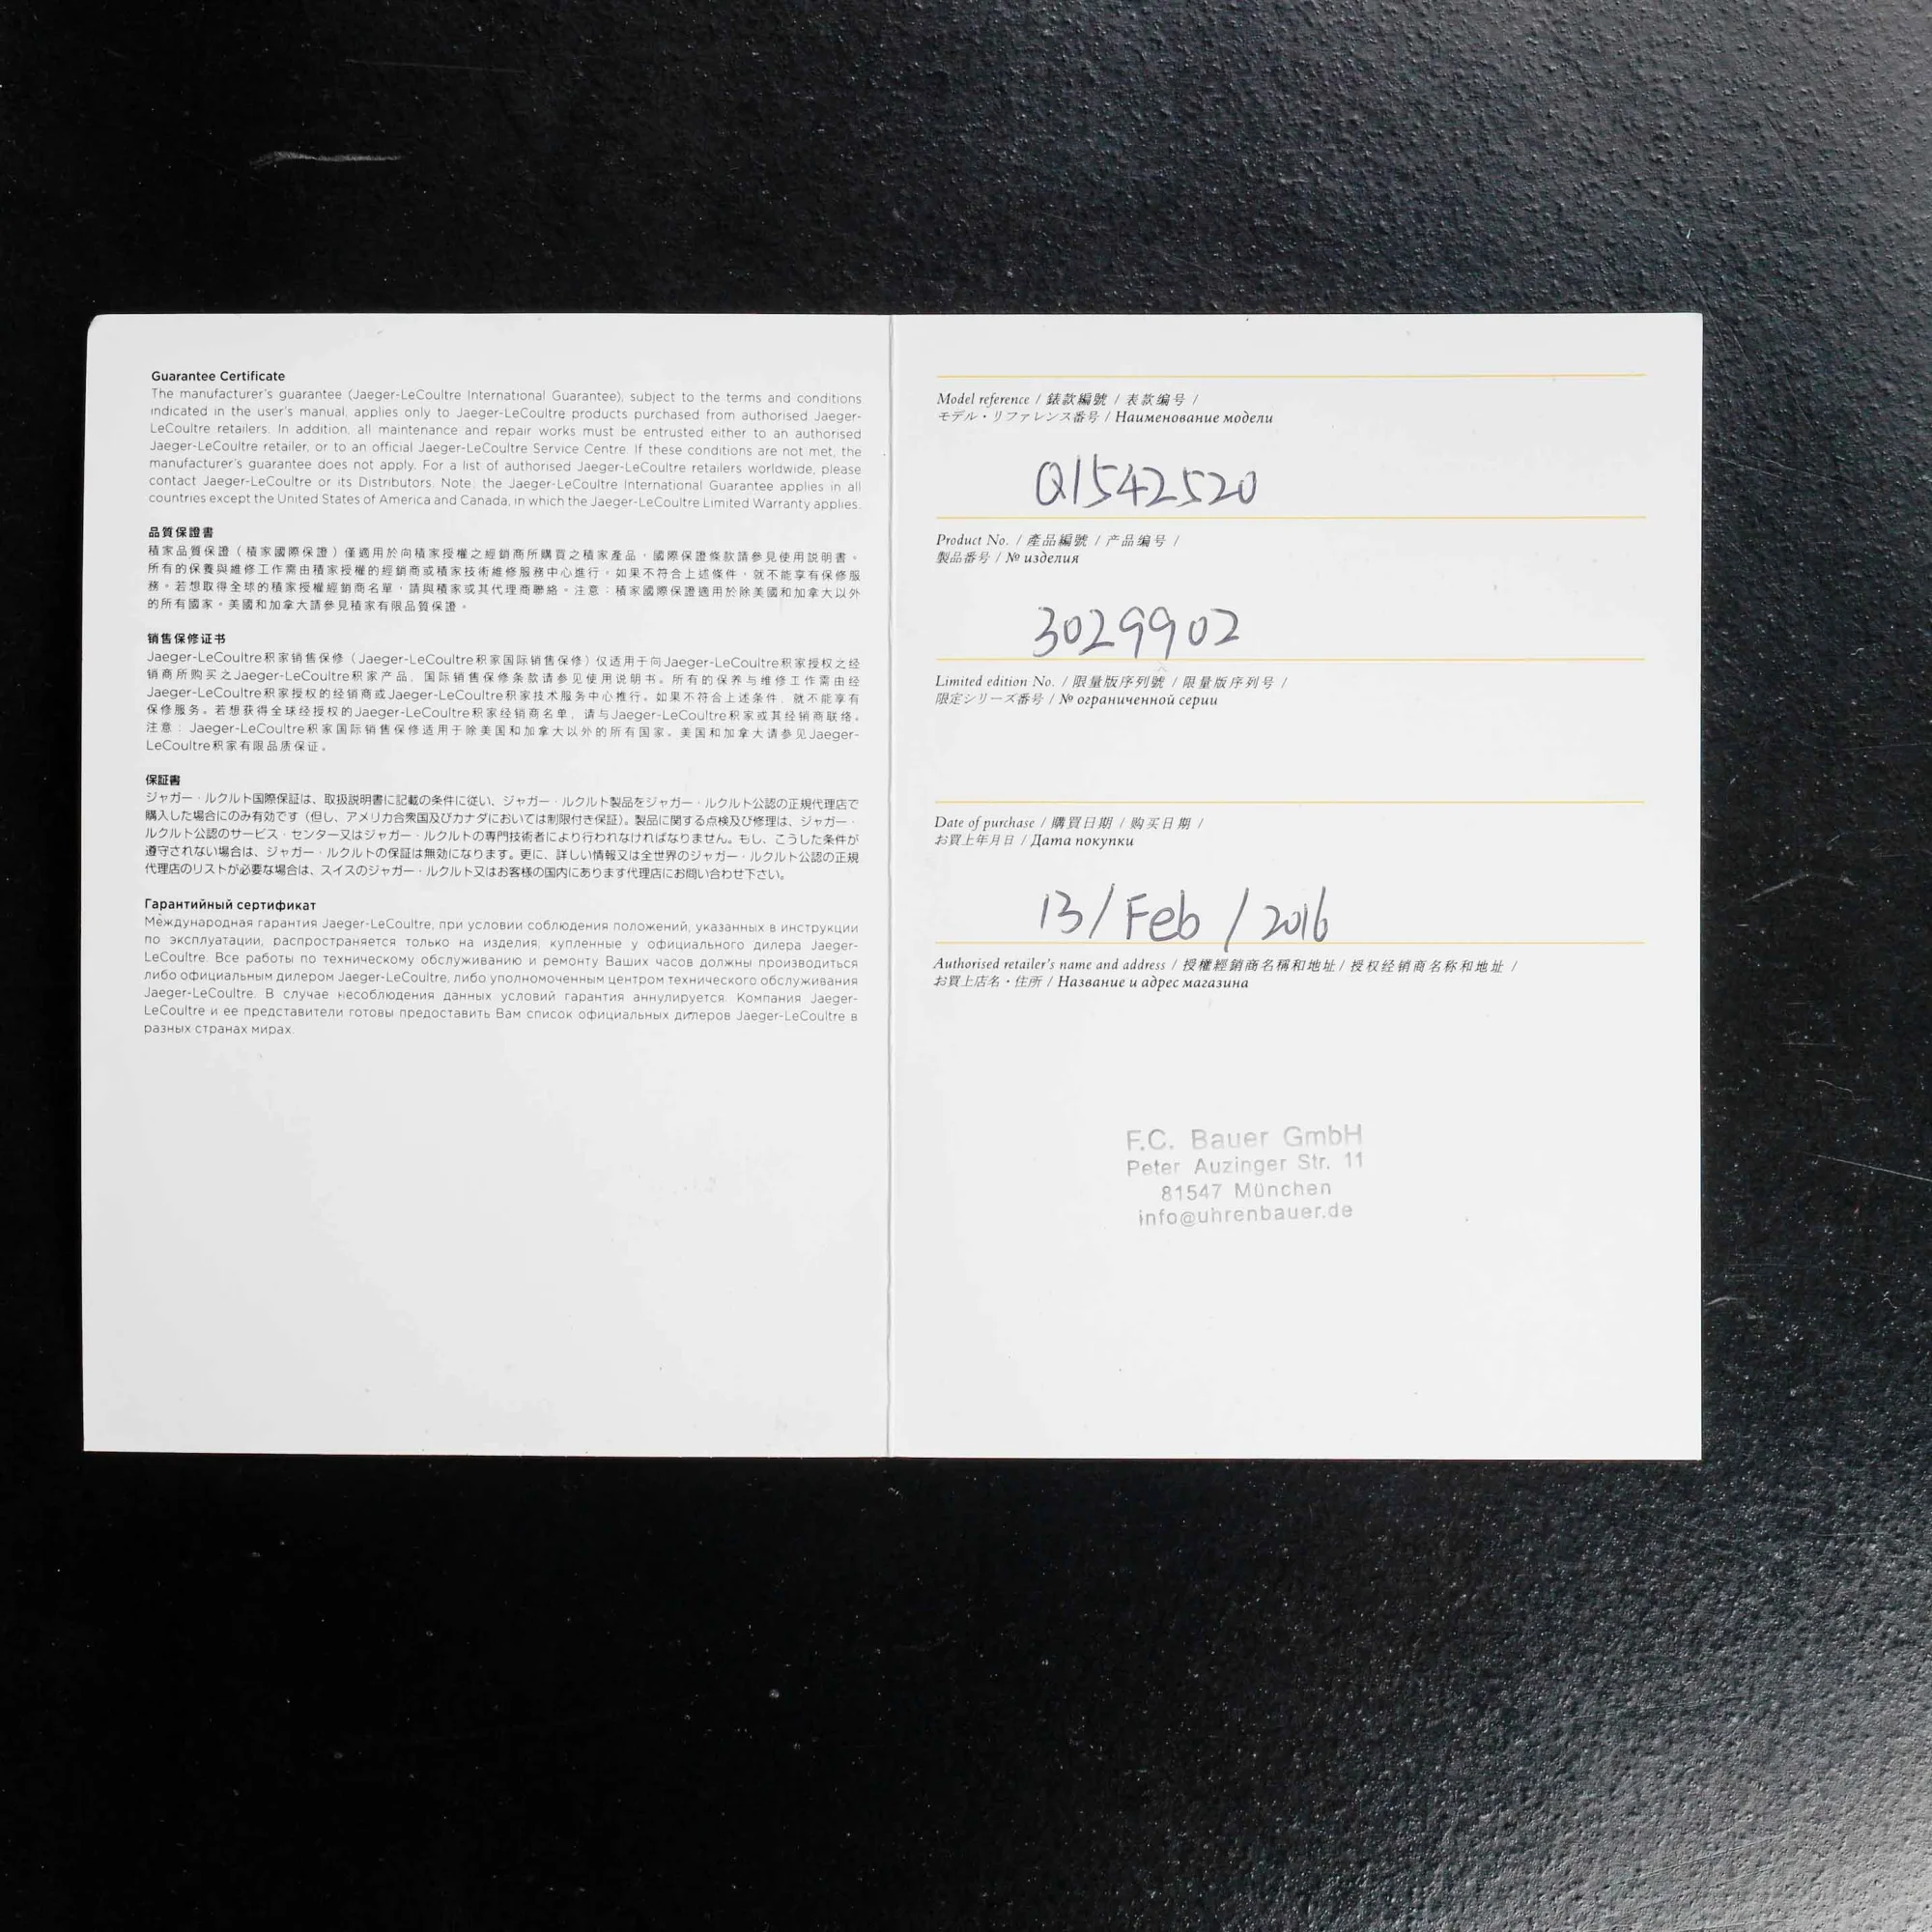 Guarantee Certificate
The manufacturer's guarantee (Jaeger-LeCoultre International Guarantee), subject to the terms and conditions
indicated in the user's manual, applies only to Jaeger-LeCoultre products purchased from authorised Jaeger-
LeCoultre retailers. In addition, all maintenance and repair works must be entrusted either to an authorised
Jaeger-LeCoultre retailer, or to an official Jaeger-LeCoultre Service Centre. If these conditions are not met, the
manufacturer's guarantee does not apply. For a list of authorised Jaeger-LeCoultre retailers worldwide, please
contact Jaeger-LeCoultre or its Distributors. Note: the Jaeger-LeCoultre International Guarantee applies in all
countries except the United States of America and Canada, in which the Jaeger-LeCoultre Limited Warranty applies.
品質保證書
積家品質保證（積家國際保證）僅適用於向積家授權之經銷商所購買之積家產品，國際保證條款請參見使用說明書。
所有的保養與維修工作需由積家授權的經銷商或積家技術維修服務中心進行。如果不符合上述條件，就不能享有保修服
務。若想取得全球的積家授權經銷商名單，請與積家或其代理商聯絡。注意：積家國際保證適用於除美國和加拿大以外
的所有國家。美國和加拿大請參見積家有限品質保證。
销售保修证书
Jaeger-LeCoultre积家销售保修（Jaeger-LeCoultre积家国际销售保修）仅适用于向Jaeger-LeCoultre积家授权之经
销商所购买之Jaeger-LeCoultre积家产品，国际销售保修条款请参见使用说明书。所有的保养与维修工作需由经
Jaeger-LeCoultre积家授权的经销商或Jaeger-LeCoultre积家技术服务中心推行。如果不符合上述条件，就不能享有
保修服务。若想获得全球经授权的Jaeger-LeCoultre积家经销商名单，请与Jaeger-LeCoultre积家或其经销商联络。
注意：Jaeger-LeCoultre积家国际销售保修适用于除美国和加拿大以外的所有国家。美国和加拿大请参见Jaeger-
LeCoultre积家有限品质保证。
保証書
ジャガー・ルクルト国際保証は、取扱説明書に記載の条件に従い、ジャガー・ルクルト製品をジャガー・ルクルト公認の正規代理店で
購入した場合にのみ有効です（但し、アメリカ合衆国及びカナダにおいては制限付き保証）。製品に関する点検及び修理は、ジャガー・
ルクルト公認のサービス・センター又はジャガー・ルクルトの専門技術者により行われなければなりません。もし、こうした条件が
遵守されない場合は、ジャガー・ルクルトの保証は無効になります。更に、詳しい情報又は全世界のジャガー・ルクルト公認の正規
代理店のリストが必要な場合は、スイスのジャガー・ルクルト又はお客様の国内にあります代理店にお問い合わせ下さい。
Гарантийный сертификат
Международная гарантия Jaeger-LeCoultre, при условии соблюдения положений, указанных в инструкции
по эксплуатации, распространяется только на изделия, купленные у официального дилера Jaeger-
LeCoultre. Все работы по техническому обслуживанию и ремонту Ваших часов должны производиться
либо официальным дилером Jaeger-LeCoultre, либо уполномоченным центром технического обслуживания
Jaeger-LeCoultre. В случае несоблюдения данных условий гарантия аннулируется. Компания Jaeger-
LeCoultre и ее представители готовы предоставить Вам список официальных дилеров Jaeger-LeCoultre в
разных странах мирах.
Model reference / 錶款編號 / 表款编号 /
モデル・リファレンス番号 / Наименование модели
Q1542520
Product No. / 產品編號 / 产品编号 /
製品番号 / № изделия
3029902
Limited edition No. / 限量版序列號 / 限量版序列号 /
限定シリーズ番号 / № ограниченной серии
Date of purchase / 購買日期 / 购买日期 /
お買上年月日 / Дата покупки
13/Feb/2016
Authorised retailer's name and address / 授權經銷商名稱和地址 / 授权经销商名称和地址 /
お買上店名・住所 / Название и адрес магазина
F.C. Bauer GmbH
Peter Auzinger Str. 11
81547 München
info@uhrenbauer.de